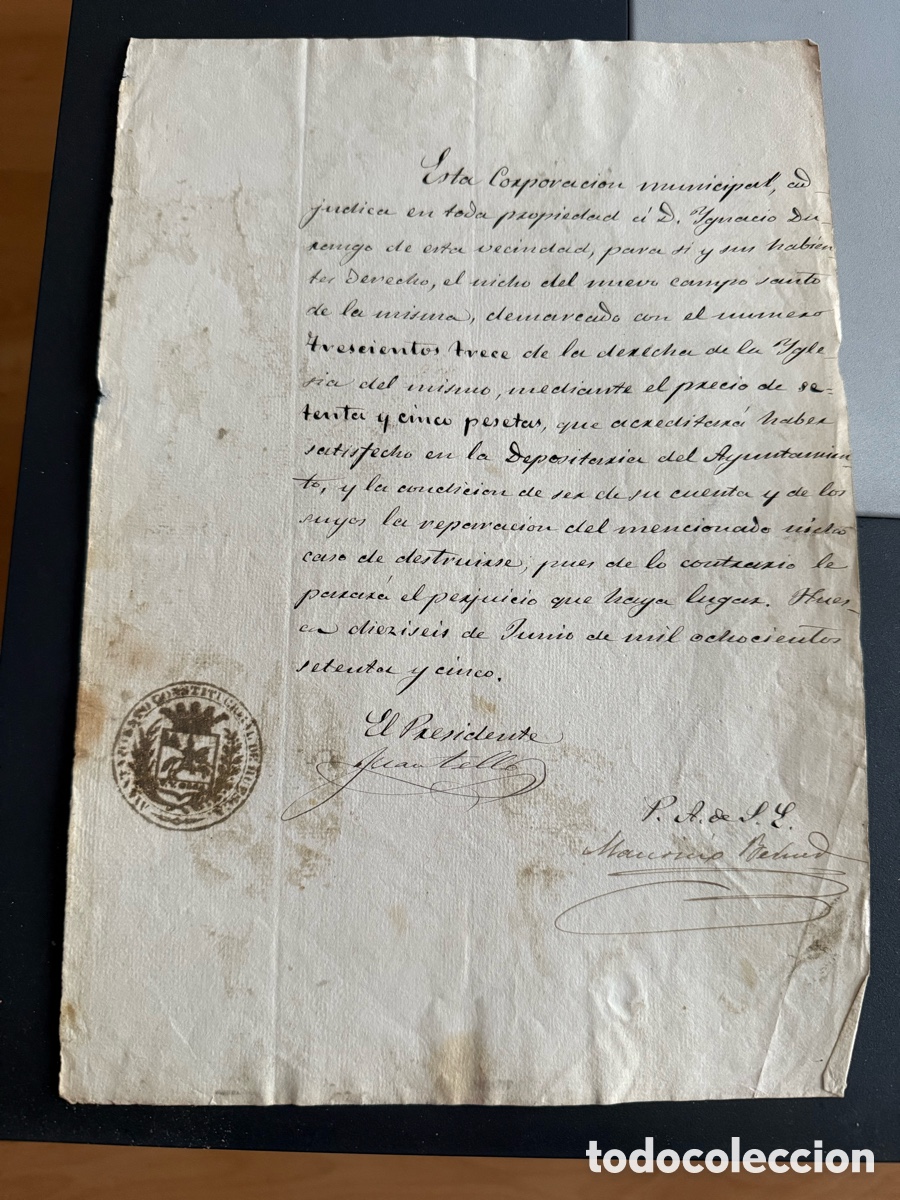 Esta Corporacion municipal, ad
judica en toda propiedad á D. Ygnacio Du-
rango de esta vecindad, para si y sus habien
tes derecho, el nicho del nuevo campo santo
de la misma, demarcado con el numero
trescientos trece de la derecha de la Ygle
sia del mismo, mediante el precio de se-
tenta y cinco pesetas, que acreditará haber
satisfecho en la Depositaria del Ayuntamien-
to, y la condicion de ser de su cuenta y de los
suyos la reparacion del mencionado nicho
caso de destruirse, pues de lo contrario le
parará el perjuicio que haya lugar. Hues-
ca dieziseis de Junio de mil ochocientos
setenta y cinco.
El Presidente
AYUNTAMIENTO CONSTITUCIONAL DE HUESCA
P. A. de S. E.
todocoleccion